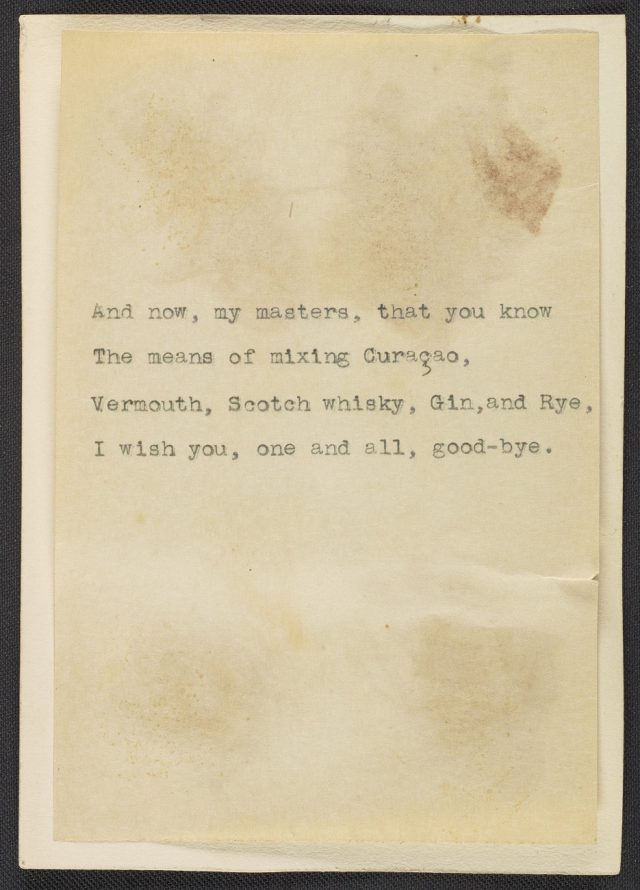 And now, my masters, that you know
The means of mixing Curaçao,
Vermouth, Scotch whisky, Gin,and Rye,
I wish you, one and all, good-bye.